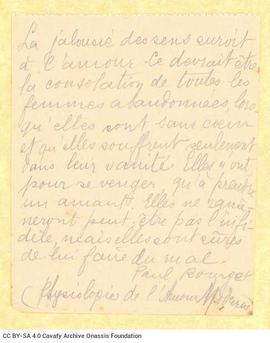 La jalousie des sens survit
à l'amour. Ce devrait être
la consolation de toutes les
femmes abandonnées lors
qu'elles sont sans cœur
et qu'elles souffrent seulement
dans leur vanité. Elles n'ont
pour se venger, qu'à prendre
un amant. Elles ne ramè
neront peut-être pas l'infi
dèle, mais elles sont sûres
de lui faire du mal.
Paul Bourget
(Physiologie de l'Amour Moderne
CC BY-SA 4.0 Cavafy Archive Onassis Foundation